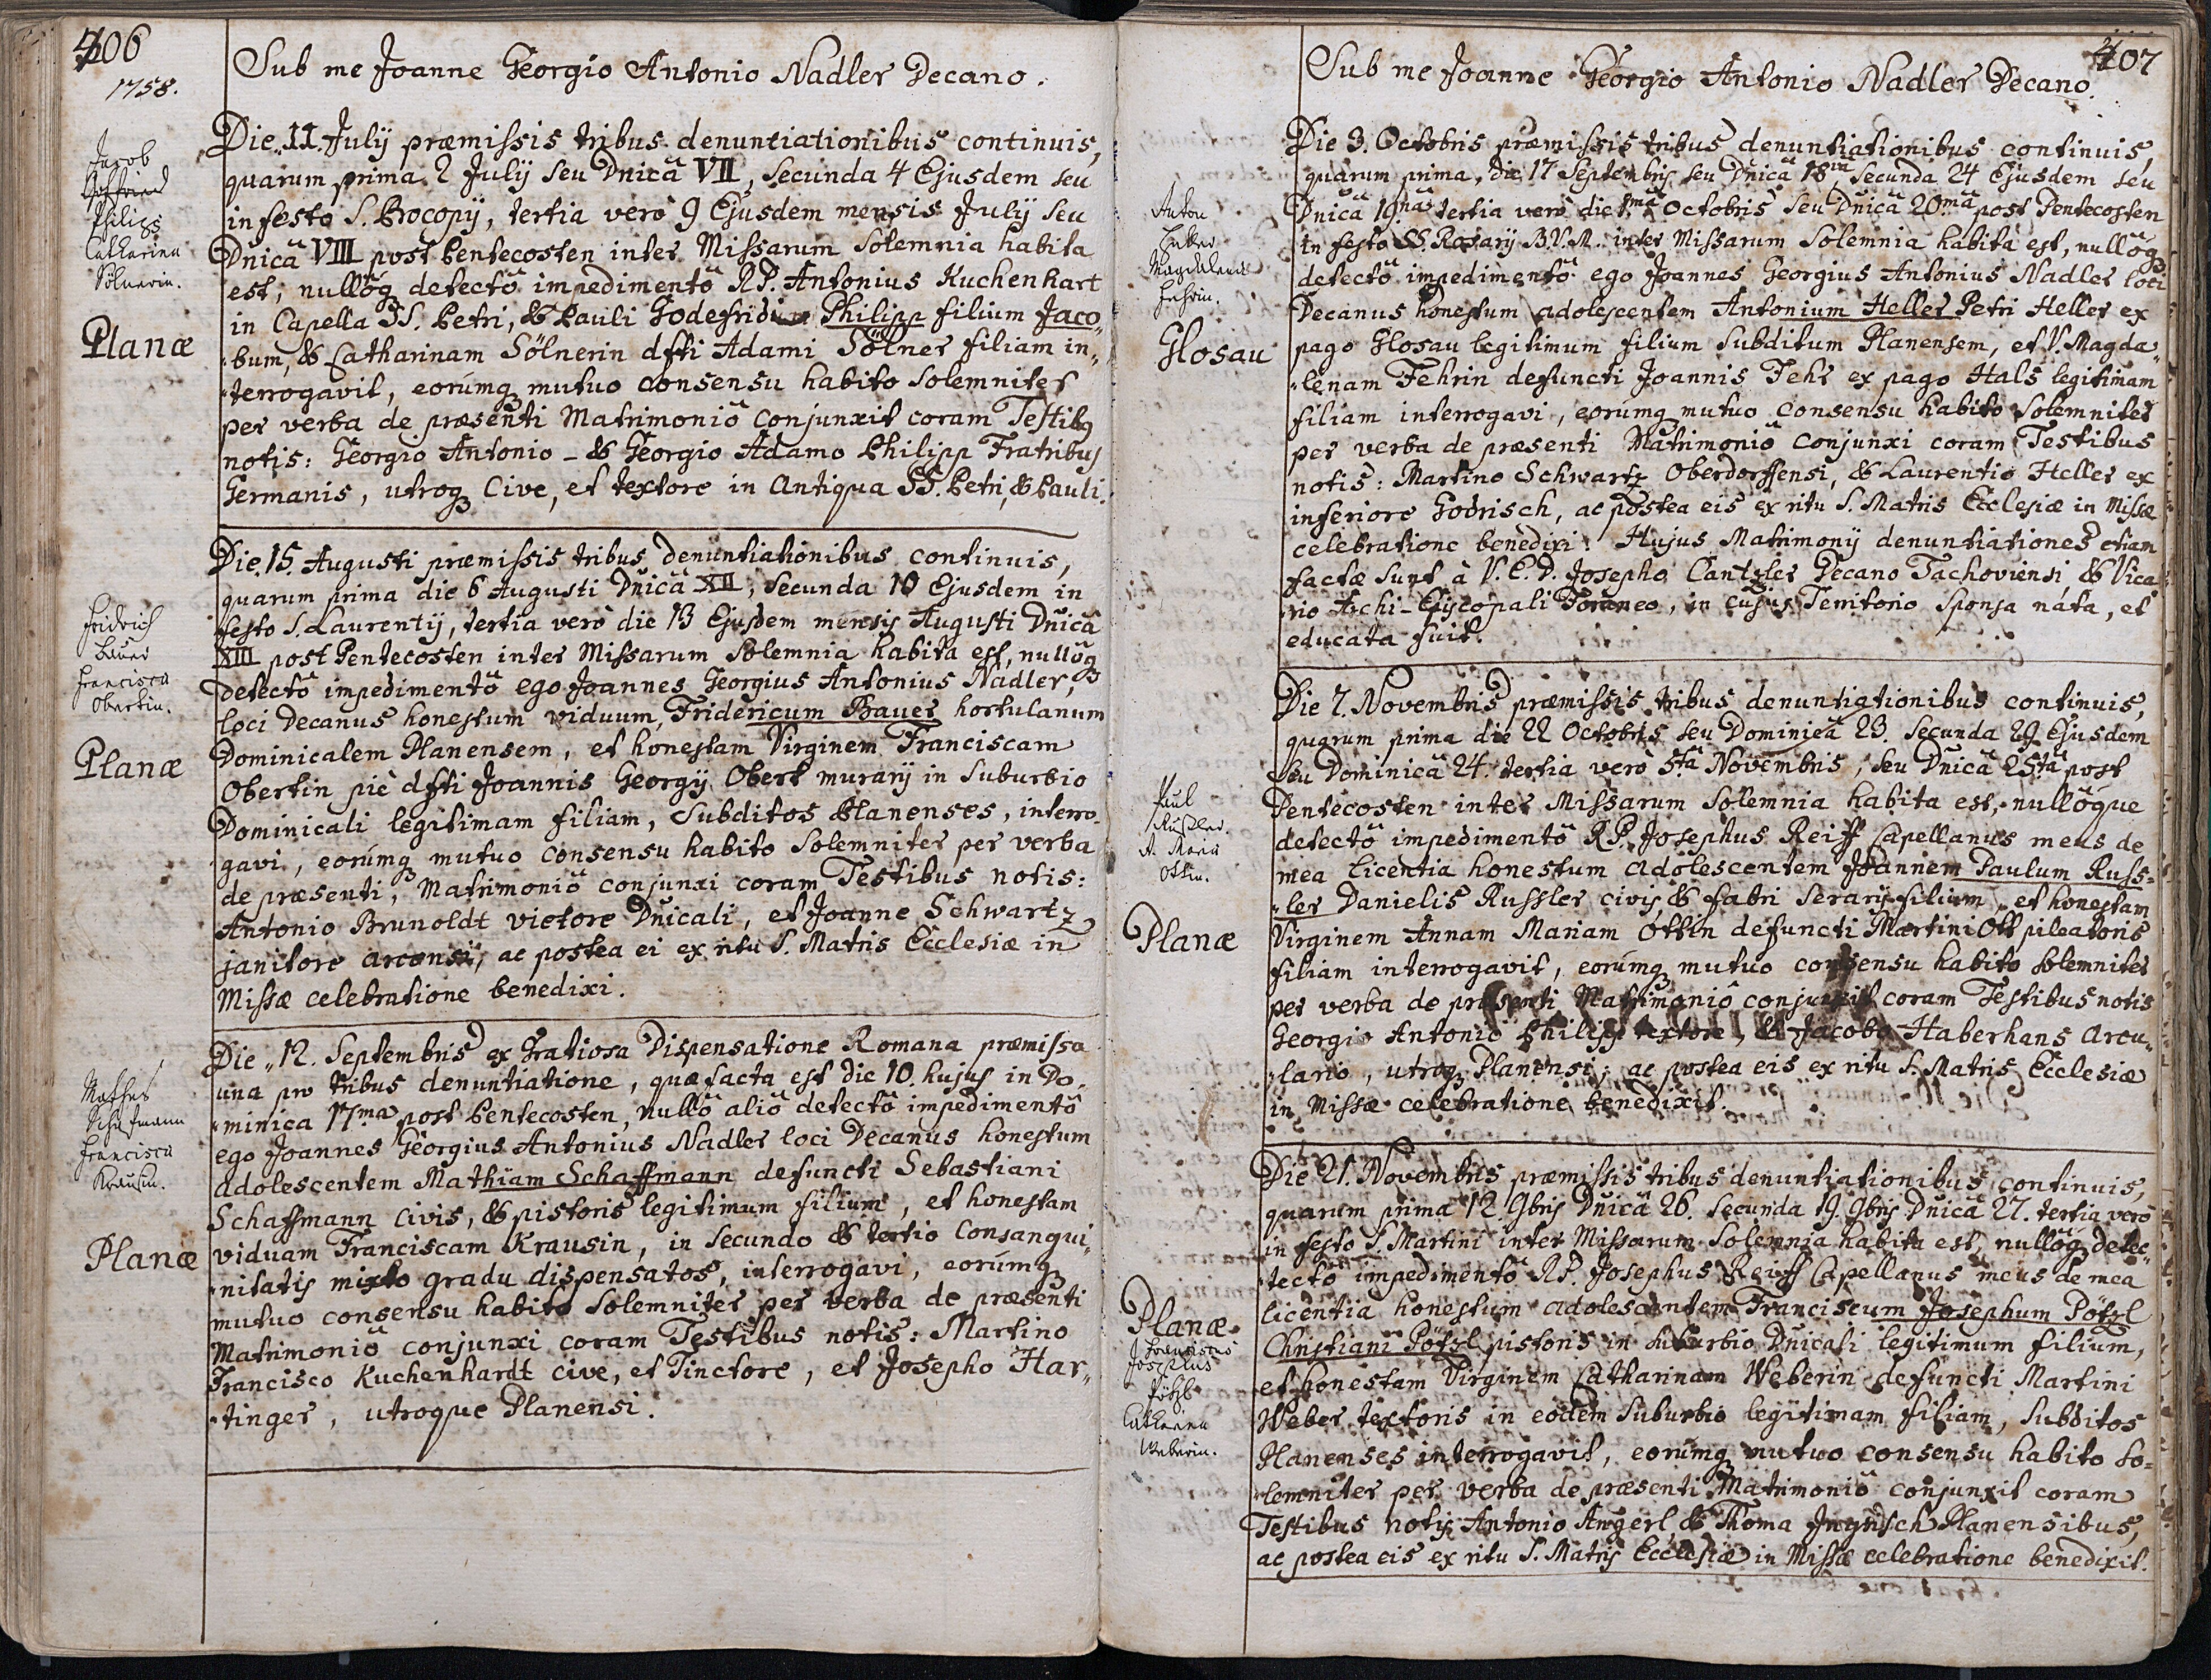 406
1758.
Sub me Joanne Georgio Antonio Nadler Decano.
Jacob
Philipp
Catharina
Sölnerin.
Planæ
Die 11. Julij præmissis tribus denuntiationibus continuis,
quarum prima 2 Julij seu Dnicâ VII, secunda 4 Ejusdem seu
in festo S. Procopij, tertia verò 9 Ejusdem mensis Julij seu
Dnicâ VIII post Pentecosten inter Missarum Solemnia habita
est; nullôq detectô impedimentô RP. Antonius Kuchenhart
in Capella SS. Petri, & Pauli Godefridum Philipp filium Jaco„
„bum, & Catharinam Sölnerin dfti Adami Sölner filiam in„
„terrogavit, eorúmq mutuo consensu habito solemniter
per verba de præsenti Matrimoniô conjunxit coram Testibq
notis: Georgio Antonio - & Georgio Adamo Philipp Fratribus
Germanis, utroq Cive, et textore in Antiqua SS. Petri, & Pauli.
Fridrich
Bauer
Francisca
Obertin.
Planæ
Die 15. Augusti præmissis tribus denuntiationibus continuis,
quarum prima die 6 Augusti Dnicâ XII; secunda 10 Ejusdem in
festo S. Laurentij, tertia verò die 13 Ejusdem mensis Augusti Dnicâ
XIII post Pentecosten inter Missarum Solemnia habita est, nullôq
detectô impedimentô ego Joannes Georgius Antonius Nadler,
loci Decanus honestum viduum, Fridericum Bauer hortulanum
Dominicalem Planensem, et honestam Virginem Franciscam
Obertin piè dfti Joannis Georgij Obert murarij in Suburbio
Dominicali legitimam filiam, Subditos Planenses, interro„
gavi, eorúmq mutuo consensu habito solemniter per verba
de præsenti, Matrimoniô conjunxi coram Testibus notis:
Antonio Brunoldt vietore Dnicali, et Joanne Schwartz
janitore arcensi, ac postea ei ex ritu S. Matris Ecclesiæ in
Missæ celebratione benedixi.
Mathes
Schafmann
Francisca
Krausin.
Planæ
Die 12. Septembris ex Gratiosa Dispensatione Romana præmissa
una pro tribus denuntiatione, quæ facta est die 10. hujus in Do„
„minica 17ma post Pentecosten, nullô aliô detectô impedimentô
ego Joannes Georgius Antonius Nadler loci Decanus honestum
adolescentem Mathiam Schaffmann defuncti Sebastiani
Schaffmann Civis, & pistoris legitimum filium, et honestam
viduam Franciscam Krausin, in secundo & tertio Consangui„
„nitatis mixto gradu dispensatos, interrogavi, eorúmq
mutuo consensu habito solemniter per verba de præsenti
Matrimoniô conjunxi coram Testibus notis: Martino
Francisco Kuchenhardt cive, et Tinctore, et Josepho Har„
„tinger, utroque Planensi.
407
Sub me Joanne Georgio Antonio Nadler Decano.
Anton
Heller
Magdalena
Fehrin.
Glosau
Die 3. Octobris præmissis tribus denuntiationibus continuis,
quarum prima, die 17 Septembris seu Dnicâ 18va secunda 24 Ejusdem seu
Dnicâ 19nâ tertia verò die 1mâ Octobris seu Dnicâ 20mâ post Pentecosten
in festo SS. Rosarij B.V.M. inter Missarum Solemnia habita est, nullôq
detectô impedimentô ego Joannes Georgius Antonius Nadler loci
Decanus honestum adolescentem Antonium Heller Petri Heller ex
pago Glosau legitimum filium Subditum Planensem, et V. Magda„
„lenam Fehrin defuncti Joannis Fehr ex pago Hals legitimam
filiam interrogavi, eorumq mutuo consensu habito solemniter
per verba de præsenti Matrimoniô conjunxi coram Testibus
notis: Martino Schwartz Oberdorffensi, & Laurentio Heller ex
inferiore Godrisch, ac postea eis ex ritu S. Matris Ecclesiæ in Missæ
celebratione benedixi. Hujus Matrimonij denuntiationes etiam
factæ sunt à V. E. D. Josepho Cantzler Decano Tachoviensi & Vica
„rio Archi-Episcopali Foraneo, in cujus Territorio Sponsa náta, et
educata fuit.
Paul
Russler.
A. Maria
Ottin.
Planæ
Die 7. Novembris præmissis tribus denuntiationibus continuis,
quarum prima die 22 Octobris seu Dominicâ 23. secunda 29 Ejusdem
seu Dominicâ 24. tertia verò 5tâ Novembris, seu Dnicâ 25tâ post
Pentecosten inter Missarum Solemnia habita est, nullôque
detectô impedimentô R.P. Josephus Reiff Capellanus meus de
mea licentia honestum adolescentem Joannem Paulum Russ=
„ler Danielis Russler civis & fabri Serarij filium, et honestam
Virginem Annam Mariam Ottin defuncti Martini Ott pileatoris
filiam interrogavit, eorúmq mutuo consensu habito solemniter
per verba de præsenti Matrimoniô conjunxit coram Testibus notis
Georgio Antonio Philipp textore, & Jacobo Haberhans arcu„
„lario, utroq Planensi; ac postea eis ex ritu S. Matris Ecclesiæ
in Missæ celebratione benedixit.
Planæ
Franciscus
Josephus
Pötzl
Catharina
Weberin.
Die 21. Novembris præmissis tribus denuntiationibus continuis,
quarum prima 12 9bris Dnicâ 26. secunda 19. 9bris Dnicâ 27. tertia verò
in festo S. Martini inter Missarum Solemnia habita est, nullôq detec„
„tectô impedimentô R.P. Josephus Reiff Capellanus meus de mea
licentia honestum adolescentem Franciscum Josephum Pötzl
Christiani Pötzl pistoris in suburbio Dnicali legitimum filium,
et honestam Virginem Catharinam Weberin defuncti Martini
Weber textoris in eodem suburbio legitimam filiam, Subditos
Planenses interrogavit, eorúmq mutuo consensu habito so=
„lemniter per verba de præsenti Matrimoniô conjunxit coram
Testibus notis Antonio Angerl, & Thoma Planensibus,
ac postea eis ex ritu S. Matris Ecclesiæ in Missæ celebratione benedixit.